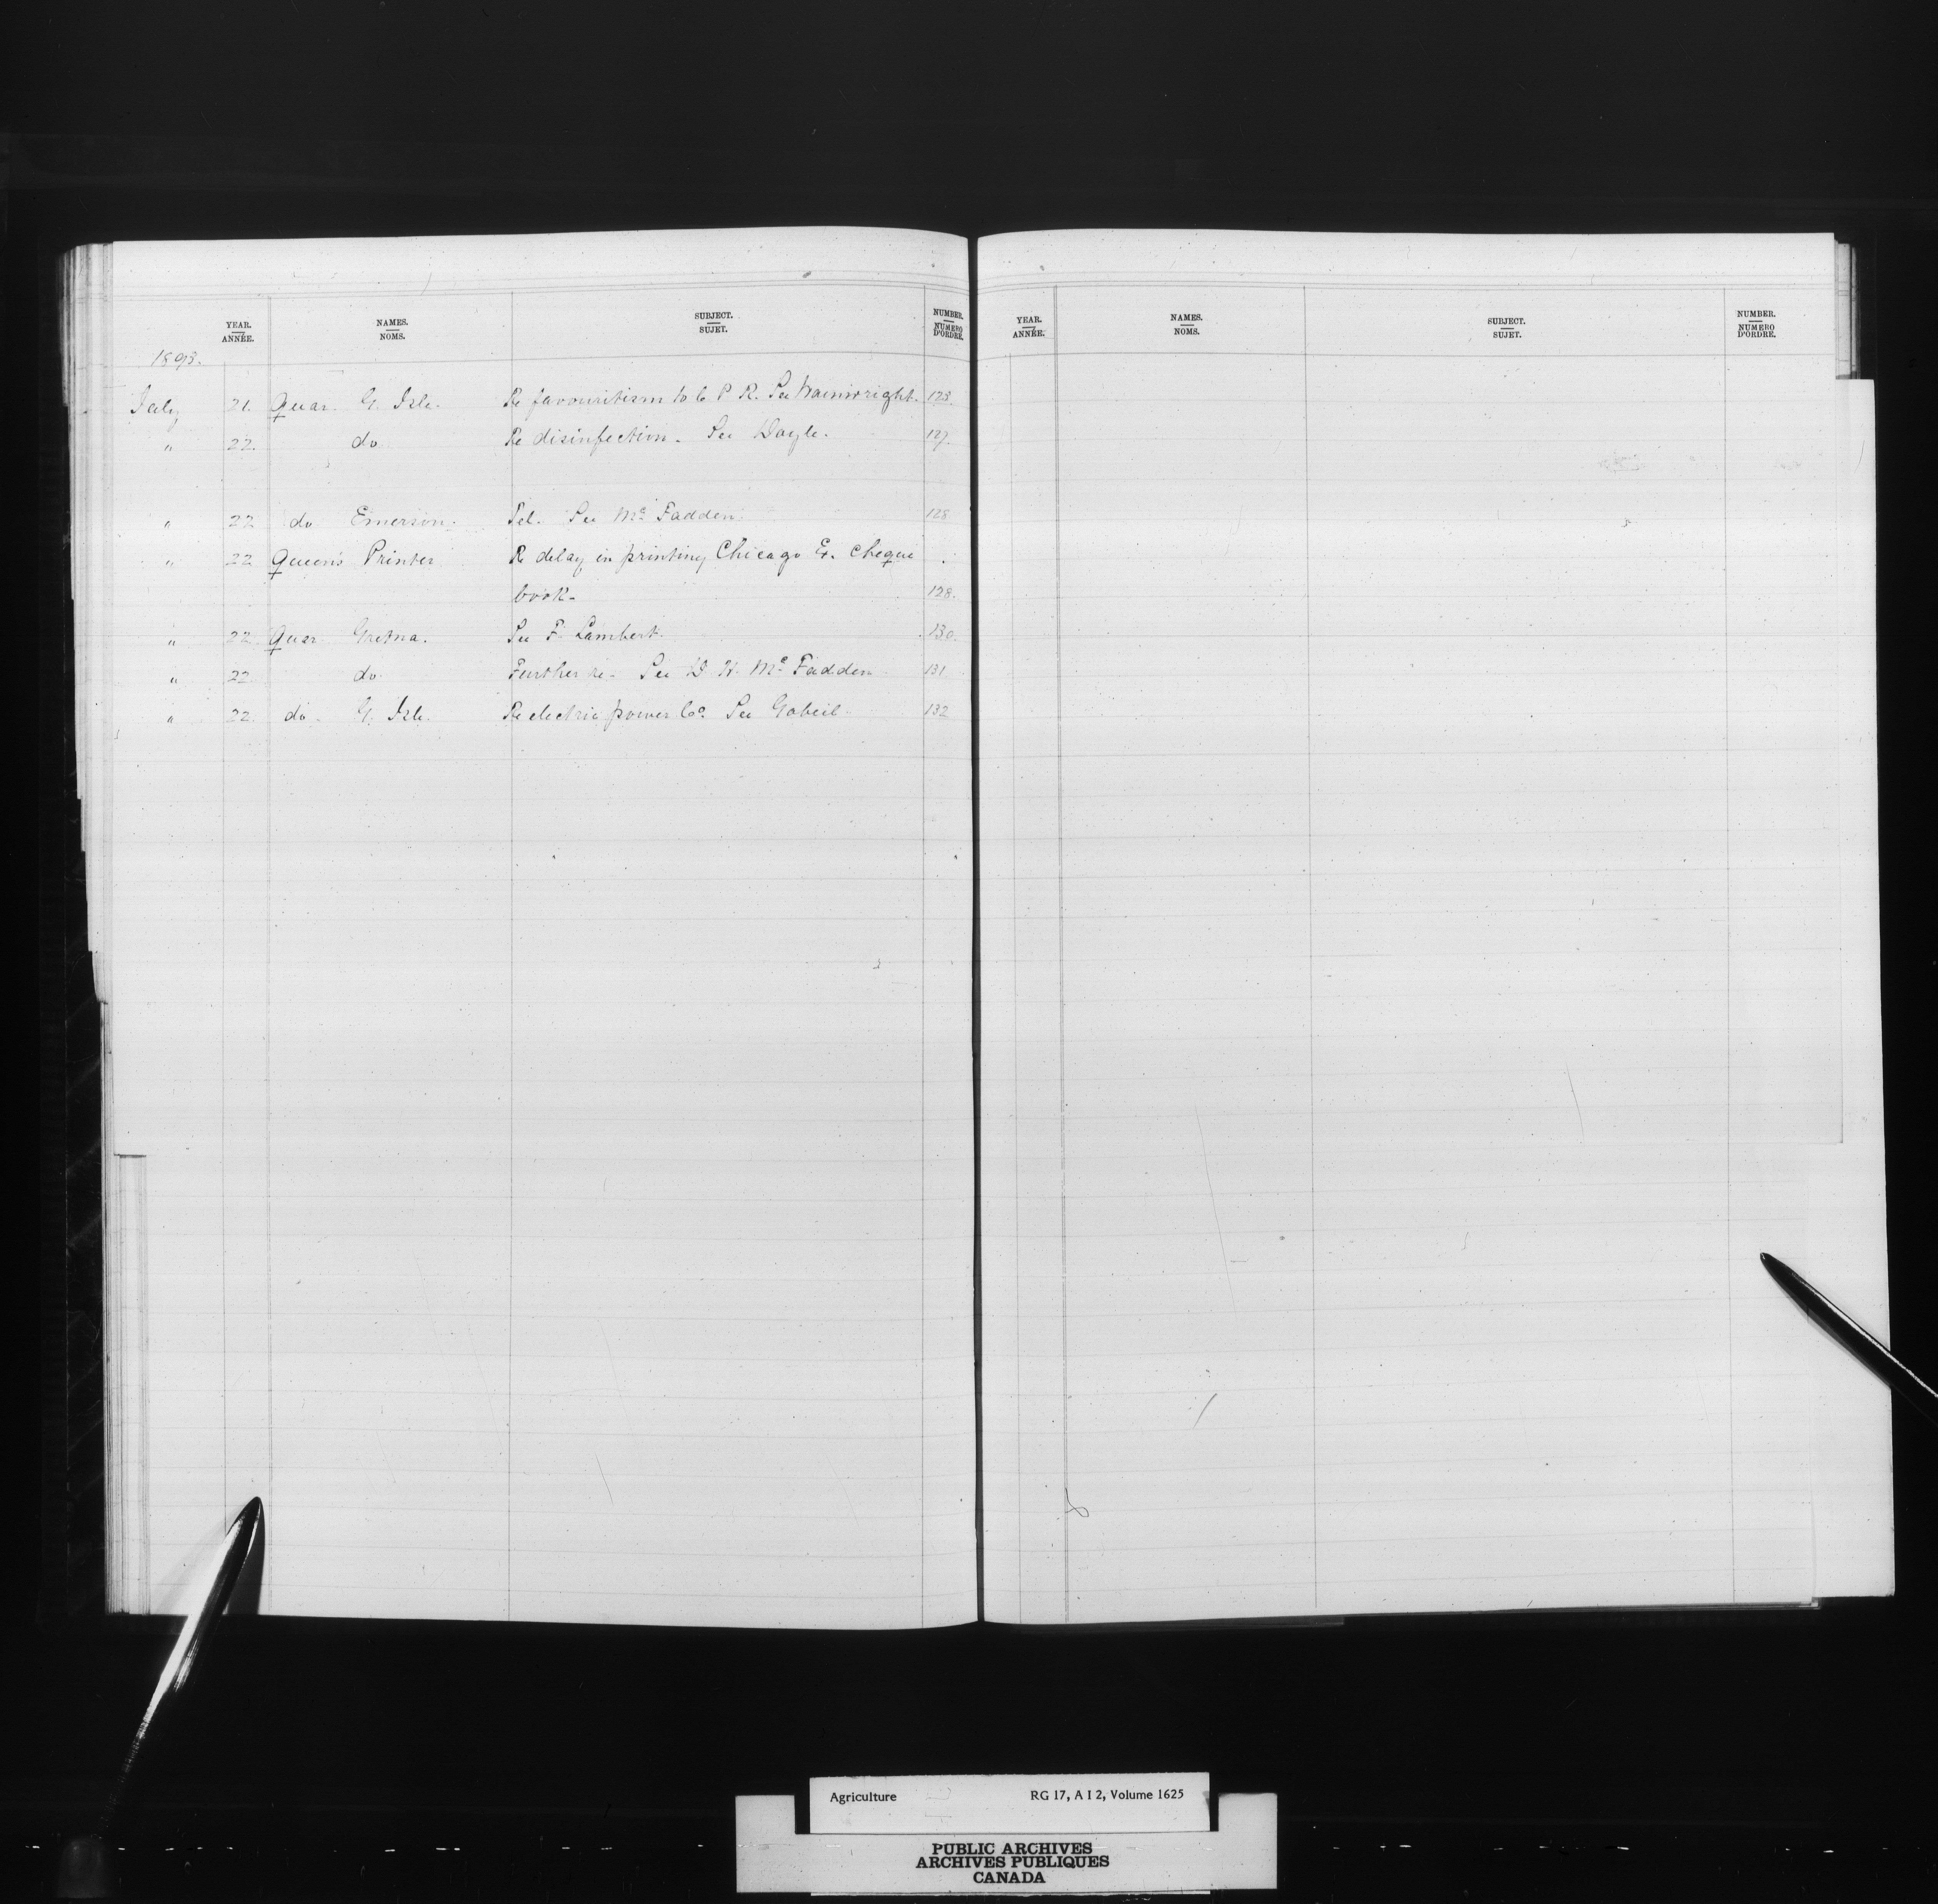 YEAR. NAMES. SUBJECT. NUMBER.
ANNÉE. NOMS. SUJET. NUMERO D'ORDRE.
1893.
July 21. Quar. G. Isle. Re favouritism to C P R. See Wainwright. 125.
" 22. do Re disinfection. See Doyle. 127.
" 22 do Emerson. Tel. See Mc Fadden. 128
" 22 Queen's Printer Re delay in printing Chicago Ex. Cheque
book. 128.
" 22 Quar Gretna. See F. Lambert. 130.
" 22. do. Further re. See D. H. Mc Fadden 131
" 22. do. G. Isle. Re electric power Co. See Gobeil. 132
YEAR. NAMES. SUBJECT. NUMBER.
ANNÉE. NOMS. SUJET. NUMERO D'ORDRE.
Agriculture RG 17, A I 2, Volume 1625
PUBLIC ARCHIVES
ARCHIVES PUBLIQUES
CANADA